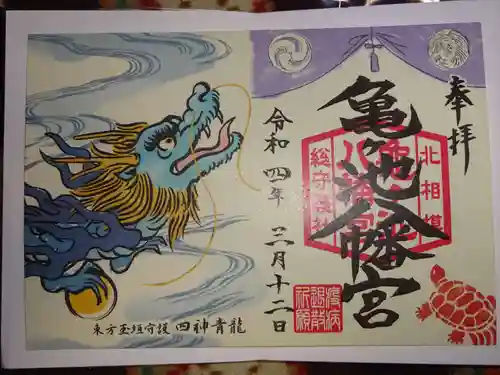 奉拝
亀ヶ池八幡宮
北相模
総守護社
令和四年二月十二日
疫病
退散
祈願
東方玉垣守護 四神青龍